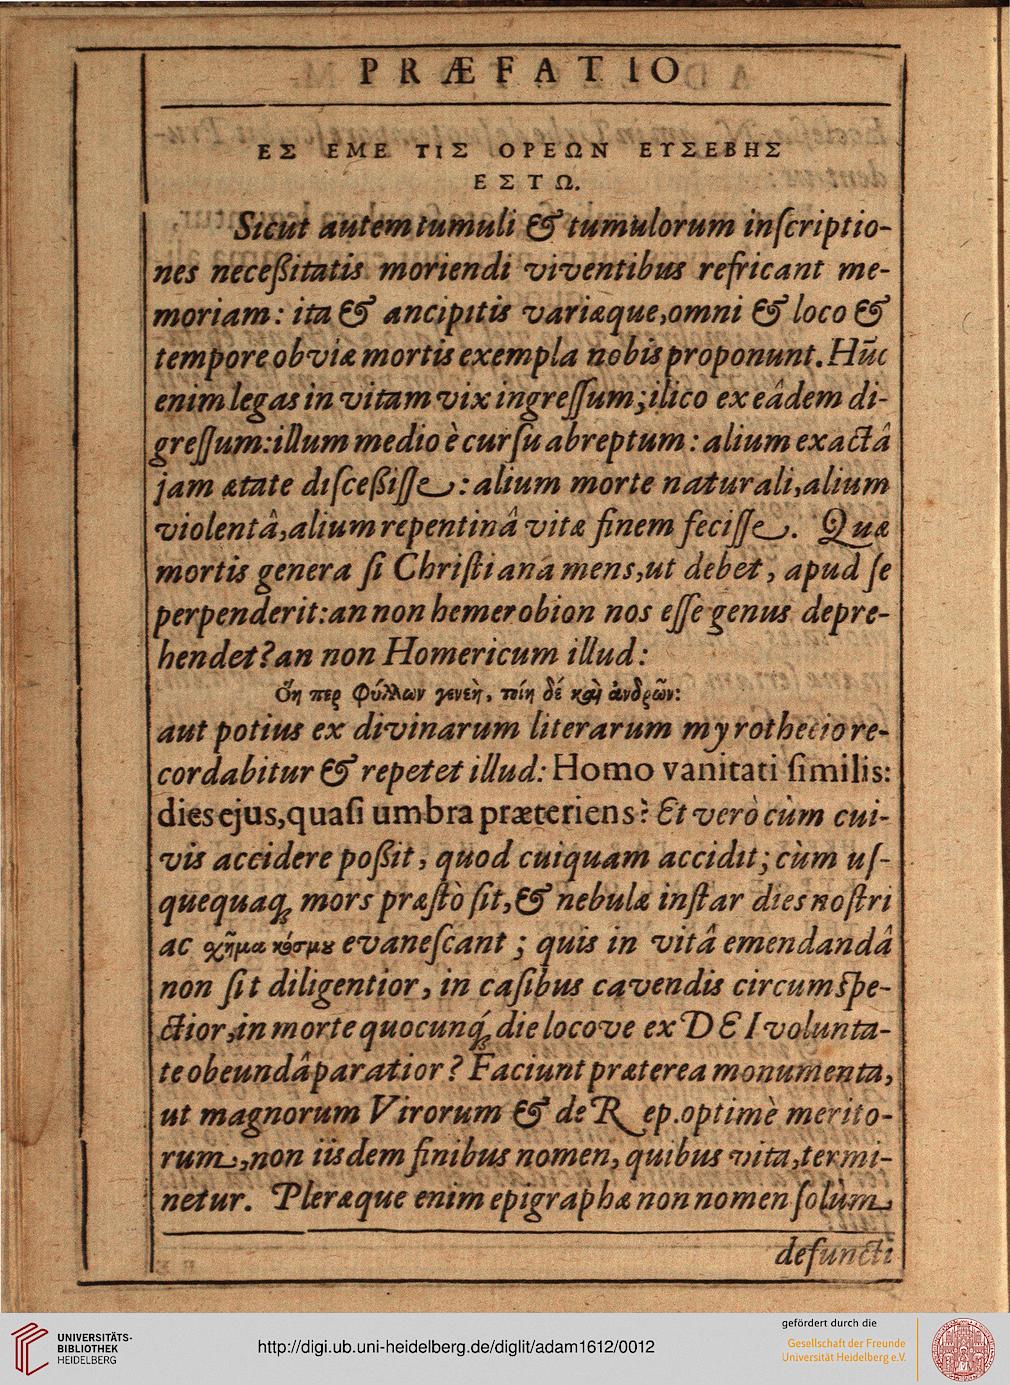 PRÆFATIO
ΕΣ ΕΜΕ ΤΙΣ ΟΡΕΩΝ ΕΥΣΕΒΗΣ
ΕΣΤΩ.
Sicut autem tumuli & tumulorum inſcriptio-
nes neceßitatis moriendi viventibus refricant me-
moriam: ita & ancipitis variæque, omni & loco &
tempore obviæ mortis exempla nobis proponunt. Hūc
enim legas in vitam vix ingreſſum; ilico ex eâdem di-
greſſum: illum medio è curſu abreptum: alium exactâ
jam ætate diſceßiſſe: alium morte naturali, alium
violentâ, alium repentinâ vitæ finem feciſſe. Quæ
mortis genera ſi Chriſtiana mens, ut debet, apud ſe
perpenderit: an non hemerobion nos eſſe genus depre-
hendet? an non Homericum illud:
Οἵη περ Φύλλων γενεὴ, τοίη δέ καὶ ἀνδρῶν:
aut potius ex divinarum literarum myrothecio re-
cordabitur & repetet illud: Homo vanitati ſimilis:
dies ejus, quaſi umbra præteriens? Et verò cùm cui-
vis accidere poßit, quod cuiquam accidit; cùm uſ-
quequaq; mors præſtò ſit, & nebulæ inſtar dies noſtri
ac σχῆμα κόσμου evaneſcant; quis in vitâ emendandâ
non ſit diligentior, in caſibus cavendis circumſpe-
ctior, in morte quocunq; die locove ex DEI volunta-
te obeundâ paratior? Faciunt præterea monumenta,
ut magnorum Virorum & de Rep. optimè merito-
rum, non iisdem finibus nomen, quibus vita, termi-
netur. Pleræque enim epigraphæ non nomen ſolùm
defuncti
UNIVERSITÄTS-
BIBLIOTHEK
HEIDELBERG
http://digi.ub.uni-heidelberg.de/diglit/adam1612/0012
gefördert durch die
Gesellschaft der Freunde
Universität Heidelberg e.V.